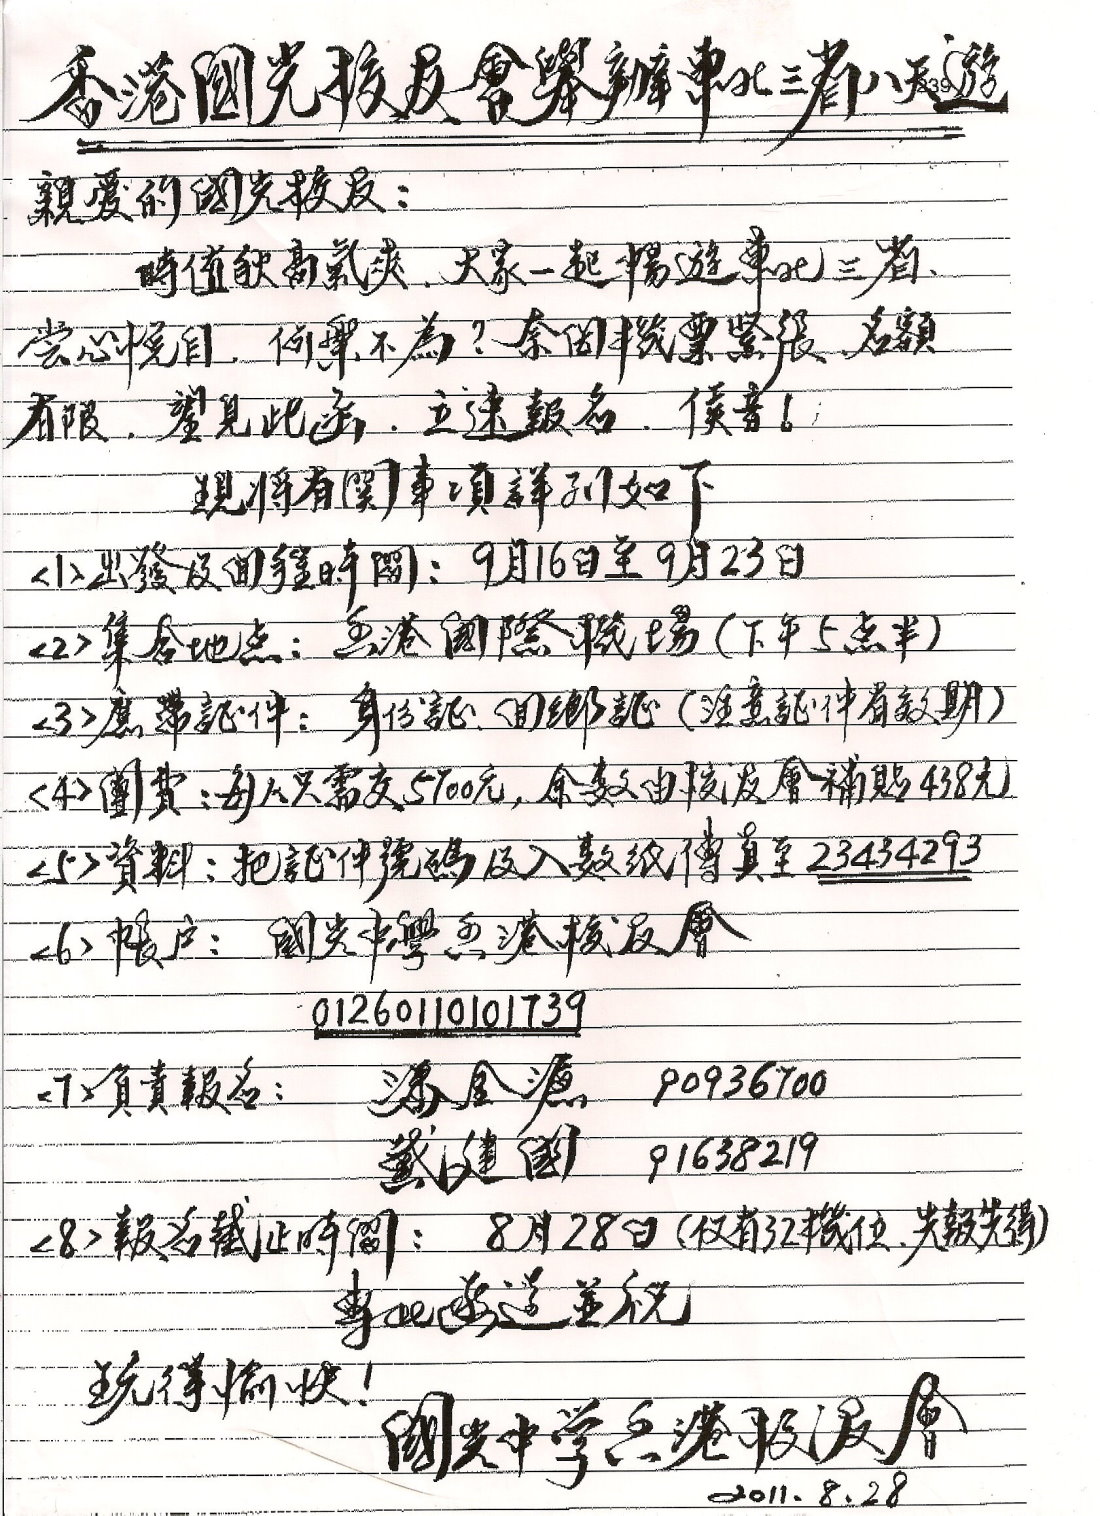 香港國光校友會舉辦東北三省八天遊
親愛的國光校友：
時值秋高氣爽、大家一起暢遊東北三省、
賞心悅目、何樂不為？奈因機票緊張、名額
有限、望見此函、立速報名、候音！
現將有関事項詳列如下
<1>出發及回程時間：9月16日至9月23日
<2>集合地点：香港國際機場（下午5点半）
<3>應帶証件：身份証、回鄉証（注意証件有效期）
<4>團費：每人只需交5700元，余数由校友會補貼438元
<5>資料：把証件號碼及入数紙傳真至23434293
<6>帳户：國光中學香港校友會
01260110101739
<7>負責報名：金源 90936700
戴建國 91638219
<8>報名截止時間：8月28日（仅有32機位、先報先得）
專此函送並祝
玩得愉快！
國光中学香港校友會
2011.8.28